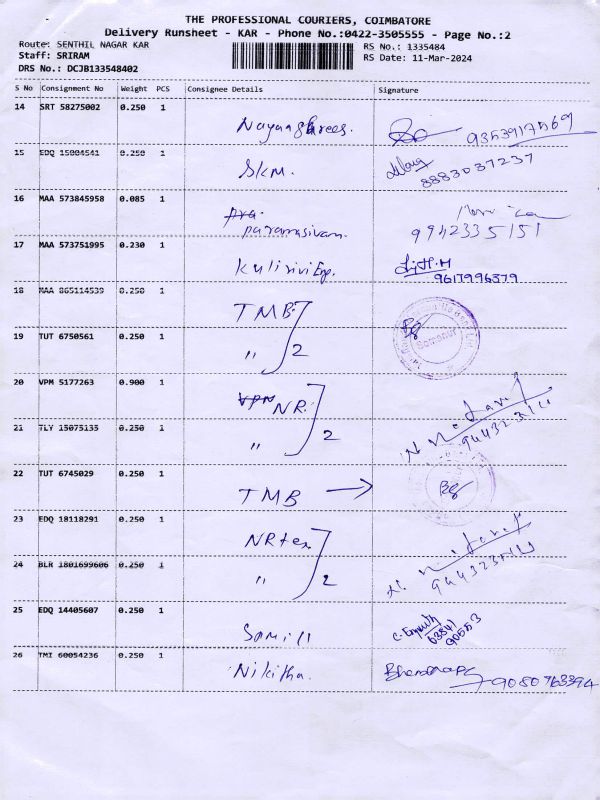 THE PROFESSIONAL COURIERS, COIMBATORE
Delivery Runsheet - KAR - Phone No.:0422-3505555 - Page No.:2
Route: SENTHIL NAGAR KAR RS No.: 1335484
Staff: SRIRAM RS Date: 11-Mar-2024
DRS No.: DCJB133548402
S No Consignment No Weight PCS Consignee Details Signature
14 SRT 58275002 0.250 1
9353917569
15 EDQ 15004541 0.250 1 SKM.
8883037237
16 MAA 573845958 0.085 1
paramasivam. 9942335151
17 MAA 573751995 0.230 1
9617996379
18 MAA 865114539 0.250 1 TMB
19 TUT 6750561 0.250 1 " 2
Somanur
20 VPM 5177263 0.900 1 VPM NR.
21 TLY 15075135 0.250 1 " 2
22 TUT 6745029 0.250 1 TMB →
23 EDQ 18118291 0.250 1 NR tex
24 BLR 1801699606 0.250 1 " 2
25 EDQ 14405607 0.250 1
63841
90553
26 TMI 60054236 0.250 1 Nikitha. 9080763394